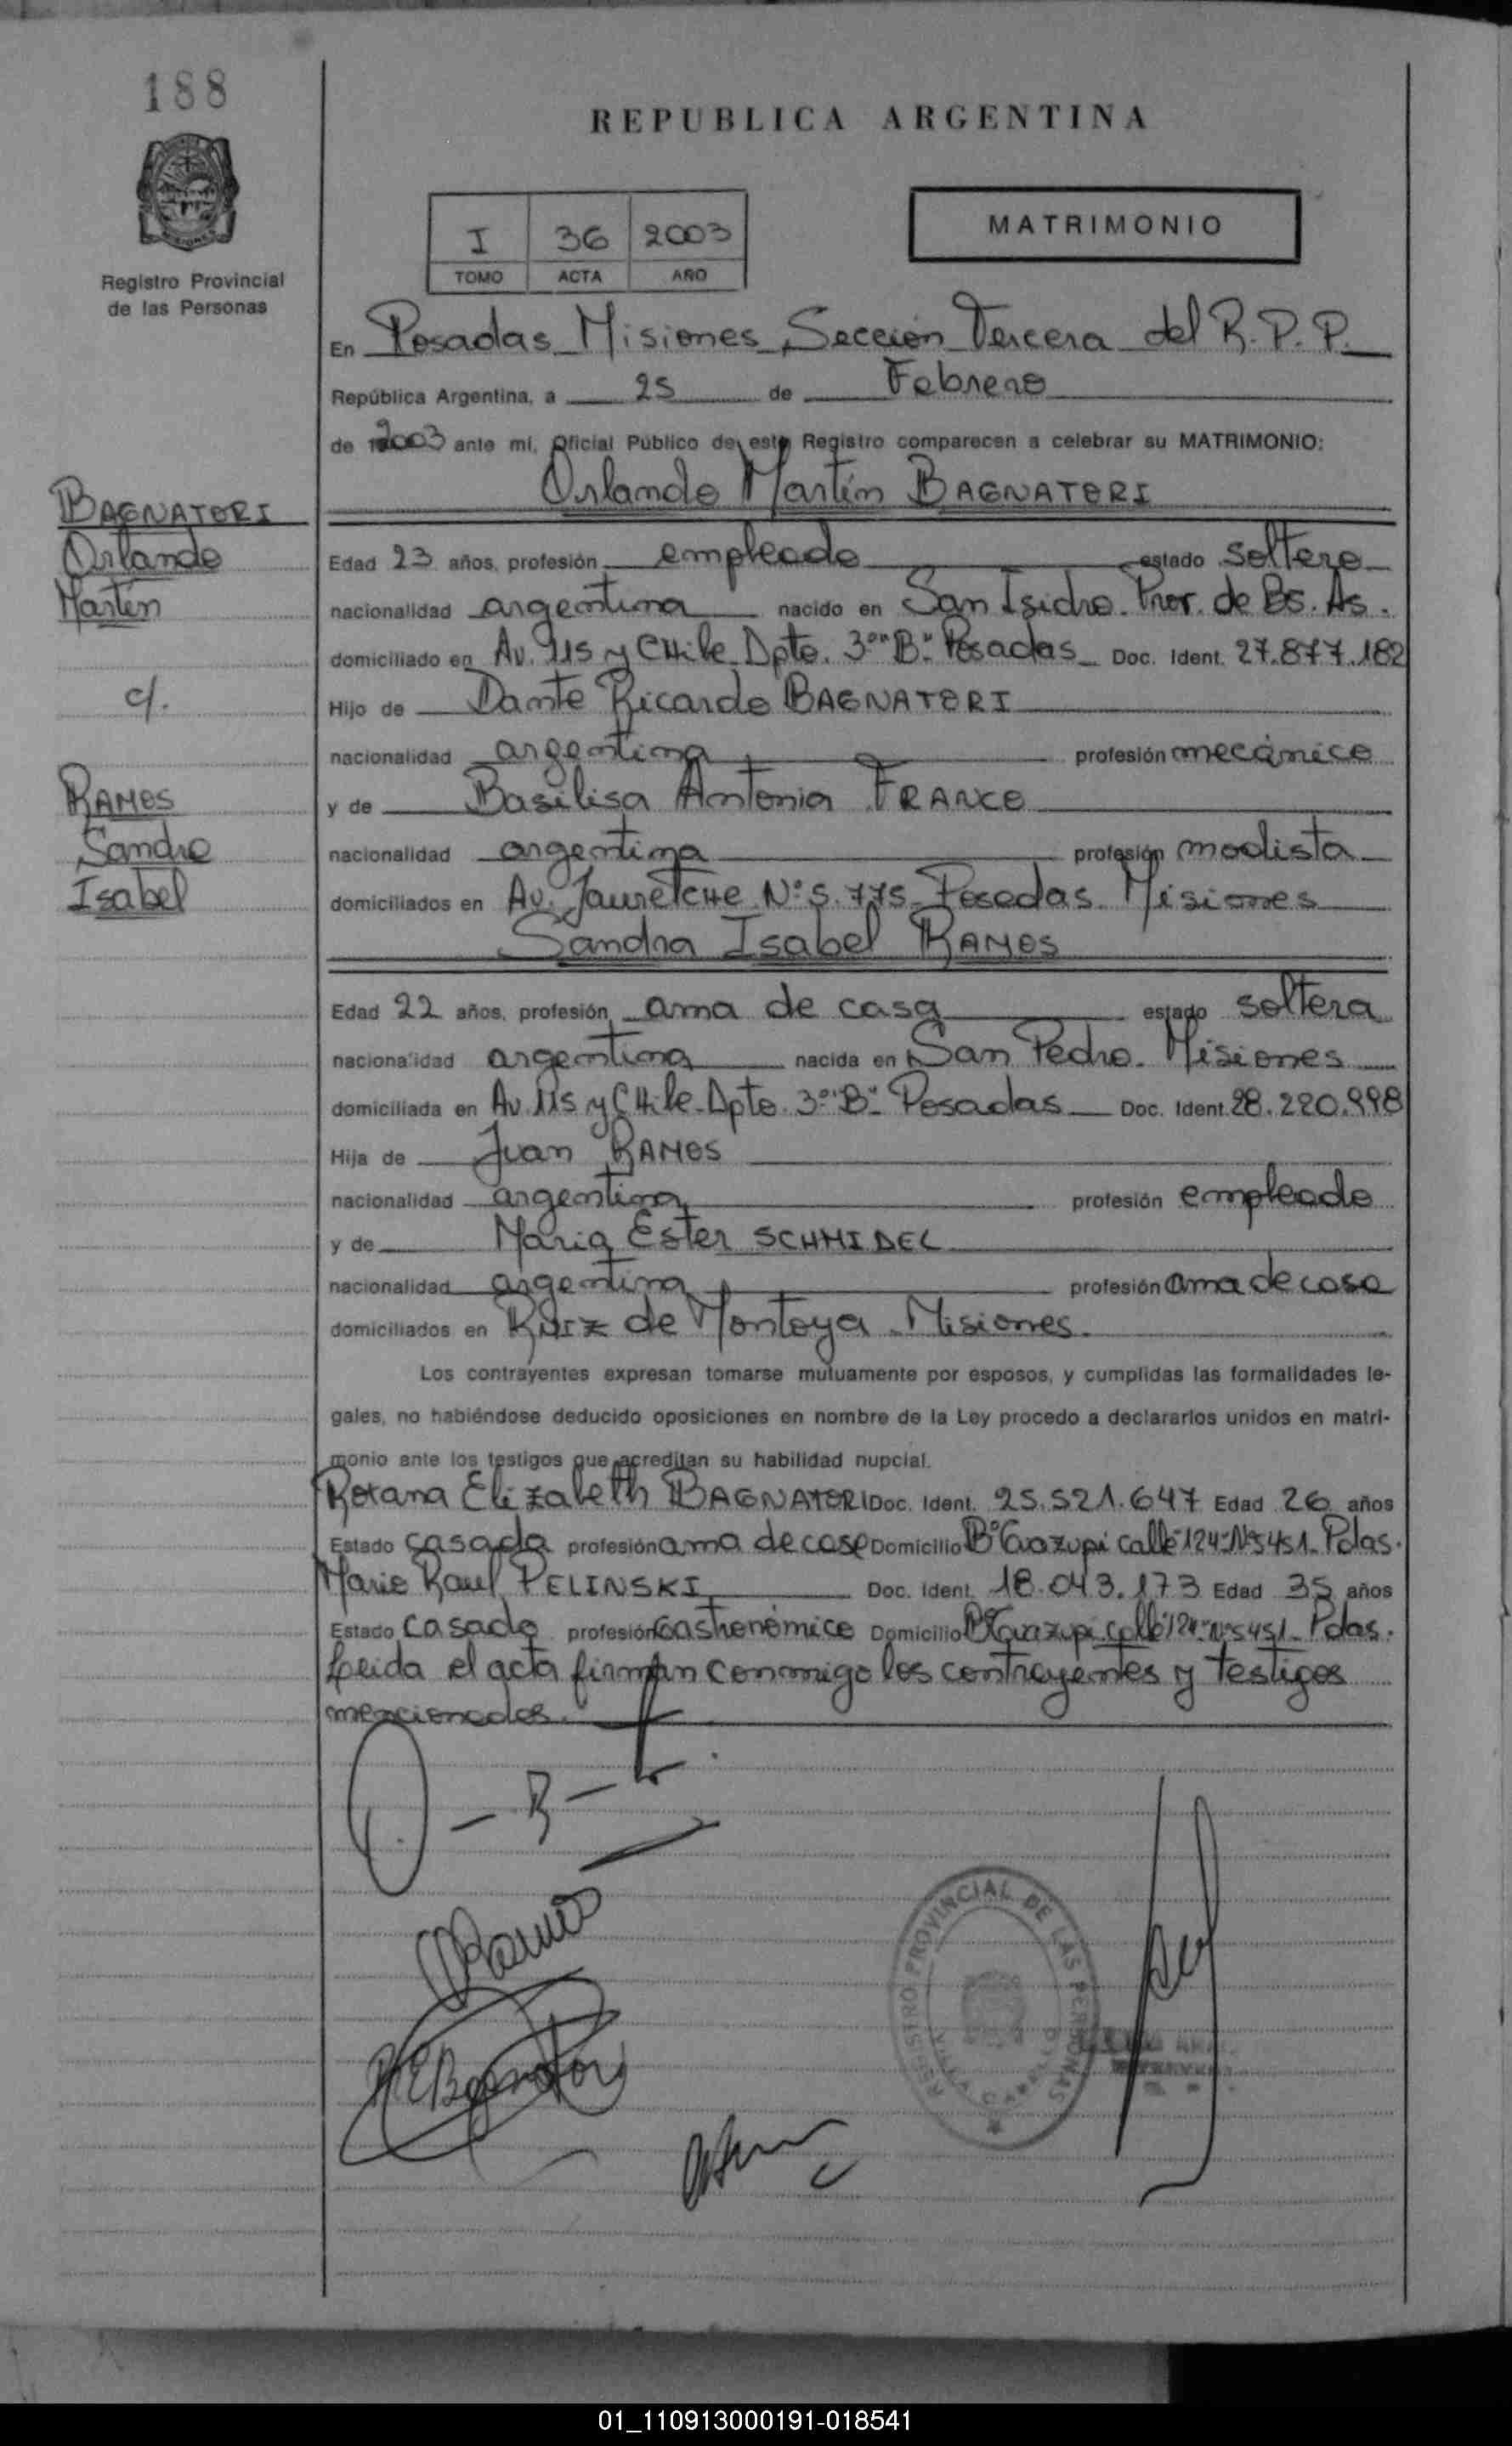 188
REPUBLICA ARGENTINA
I 36 2003
TOMO ACTA AÑO
MATRIMONIO
Registro Provincial
de las Personas
En Posadas Misiones Sección Tercera del R.P.P.
República Argentina, a 25 de Febrero
de 2003 ante mí, Oficial Público de este Registro comparecen a celebrar su MATRIMONIO:
Orlando Martín BAGNATORI
BAGNATORI
Orlando
Martín
c/.
RAMOS
Sandra
Isabel
Edad 23 años, profesión empleado estado soltero
nacionalidad argentina nacido en San Isidro. Prov. de Bs. As.
domiciliado en Av. y CHile Dpto. 3º "B" Posadas Doc. Ident. 27.877.182
Hijo de Dante Ricardo BAGNATORI
nacionalidad argentina profesión mecánico
y de Basilisa Antonia FRANCO
nacionalidad argentina profesión modista
domiciliados en Av. JauretCHe Nº 5.775 Posadas Misiones
Sandra Isabel RAMOS
Edad 22 años, profesión ama de casa estado soltera
nacionalidad argentina nacida en San Pedro. Misiones
domiciliada en Av. y CHile Dpto. 3º "B" Posadas Doc. Ident. 28.220.998
Hija de Juan RAMOS
nacionalidad argentina profesión empleado
y de María Ester SCHMIDEL
nacionalidad argentina profesión ama de casa
domiciliados en Ruiz de Montoya Misiones.
Los contrayentes expresan tomarse mutuamente por esposos, y cumplidas las formalidades le-
gales, no habiéndose deducido oposiciones en nombre de la Ley procedo a declararlos unidos en matri-
monio ante los testigos que acreditan su habilidad nupcial.
Roxana Elizabeth BAGNATORI Doc. Ident. 25.521.647 Edad 26 años
Estado casada profesión ama de casa Domicilio Bº calle 124 Nº 5451 Pdas.
Mario Raul PELINSKI Doc. Ident. 18.043.173 Edad 35 años
Estado casado profesión Gastronómico Domicilio Bº calle 124 Nº 5451 Pdas.
Leida el acta firman conmigo los contrayentes y testigos
mencionados.
Ramos
REGISTRO PROVINCIAL DE LAS PERSONAS
01_110913000191-018541